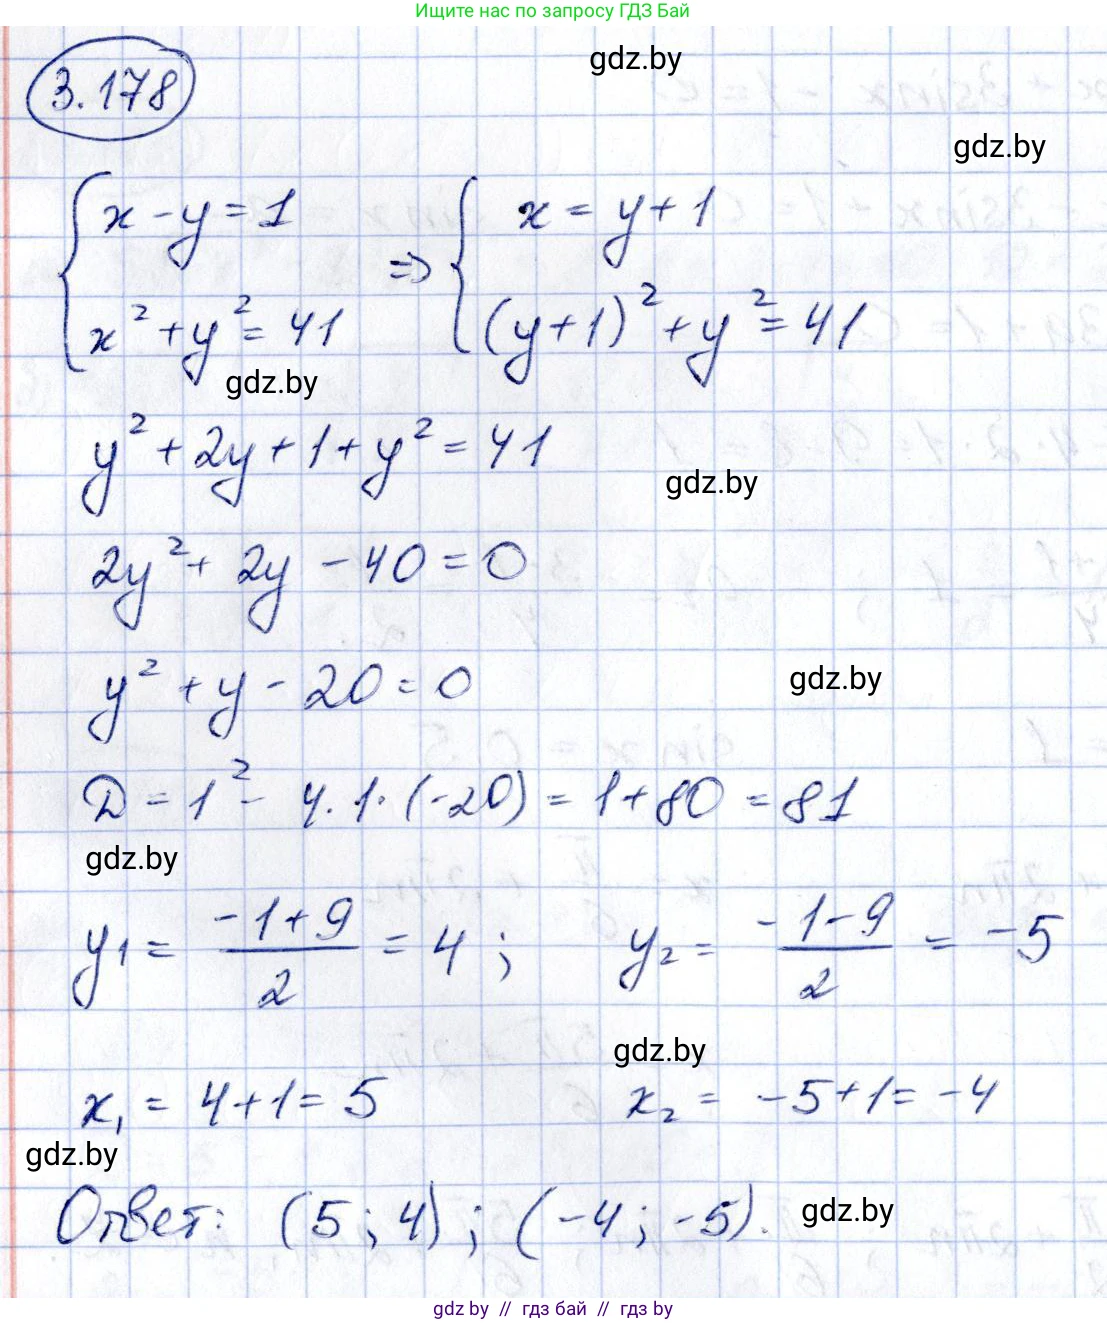 Ищите нас по запросу ГДЗ Бай
gdz.by
3.178
gdz.by
{ x - y = 1 ⇒ { x = y + 1
x² + y² = 41 (y+1)² + y² = 41
gdz.by
y² + 2y + 1 + y² = 41
gdz.by
2y² + 2y - 40 = 0
y² + y - 20 = 0
gdz.by
D = 1² - 4·1·(-20) = 1 + 80 = 81
gdz.by
y₁ = (-1+9)/2 = 4 ; y₂ = (-1-9)/2 = -5
gdz.by
x₁ = 4+1 = 5 x₂ = -5+1 = -4
gdz.by
Ответ: (5; 4) ; (-4; -5).
gdz.by
gdz by // гдз бай // гдз by